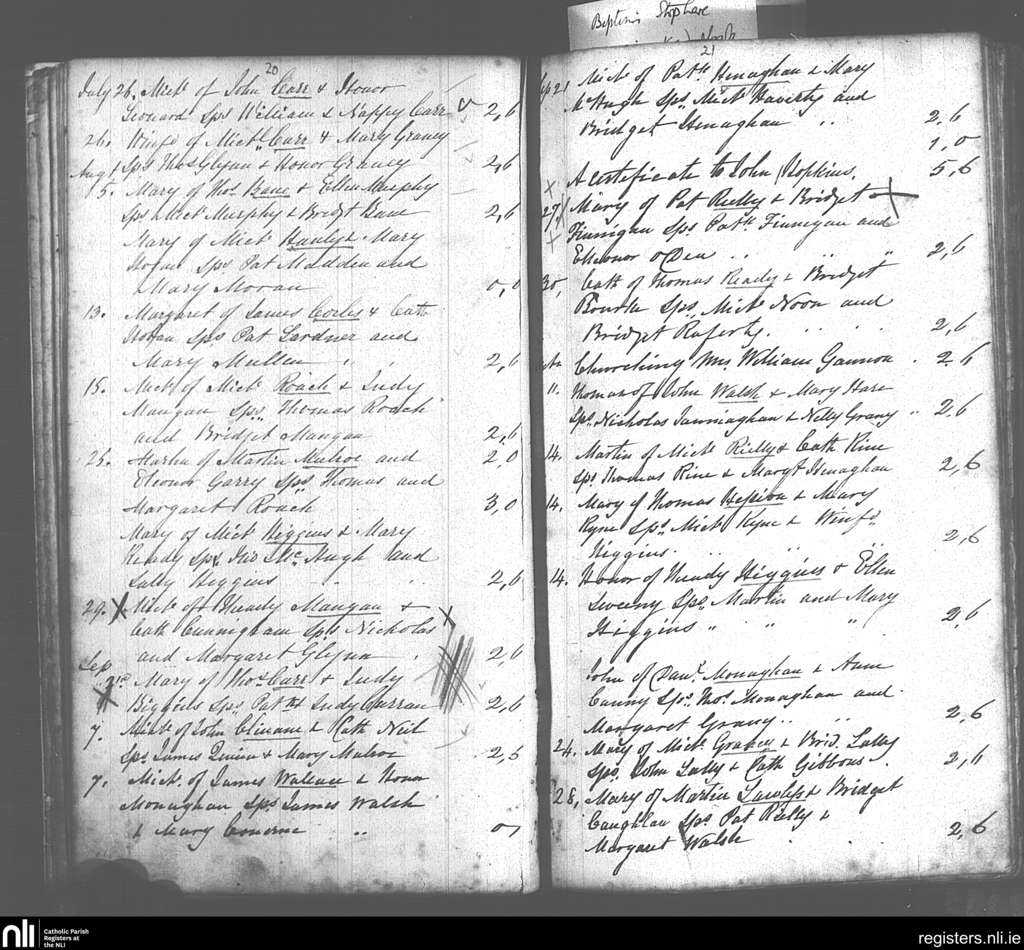 Baptisms
20
July 26. Mich.l of John Carr & Honor
Leonard Sps William & Nappy Carr 2,6
26. Winif.d of Mich.l Carr & Mary Graney
Sps Thos Glynn & Honor Graney 2,6
Augt 5. Mary of Thos. Bane & Ellen Murphy
Sps Mich.l Murphy & Bridgt Bane 2,6
Mary of Mich.l Hanly & Mary
Horan Sps Pat Madden and
Mary Moran 0,0
13. Margaret of James Corles & Cath
Hogan Sps Pat Lardner and
Mary Mullen 2,6
15. Mich.l of Mich.l Roach & Judy
Mangan Sps. Thomas Roach
and Bridget Mangan 2,6
25. Martin of Martin Mulroe and 2,0
Eleonor Garry Sps Thomas and
Margaret Roach 3,0
Mary of Mich.l Higgins & Mary
Ready Sps Mc.Hugh and
Sally Higgins 2,6
29. X Mich.l of Thady Mangan &
Cath Cunningham Sps Nicholas
and Margaret Glynn 2,6
Sep
2nd Mary of Thos Carr & Judy
Higgins Sps Pat & Judy Curran 2,6
7. Mich.l of John & Kath Neil
Sps James Quinn & Mary Mulroe 2,6
7. Mich.l of James Wallace & Honor
Monaghan Sps James Walsh
& Mary
21
Sep 21 Mich.l of Patk Henaghan & Mary
McHugh Sps. Mich.l Haverty and
Bridget Henaghan 2,6
1,0
x A certificate to John Hopkins. 5,6
27. Mary of Pat Rielly & Bridget
Finnigan Sps Patk Finnegan and
Eleonor oDea 2,6
30, Cath of Thomas Ready & Bridget
Bourke Sps. Mich.l Noon and
Bridget Raferty. 2,6
Churching Mrs. William Gannon 2,6
11. Thomas of John Walsh & Mary Hare
Sps. Nicholas & Nelly Grany 2,6
14. Martin of Mich.l Rielly & Cath Kine
Sps Thomas Kine & Margt Henaghan 2,6
14. Mary of Thomas Hession & Mary
Kyne Sps. Mich.l Kyne & Winf.d
Higgins. 2,6
14. Honor of Thady Higgins & Ellen
Sweeny Sps. Martin and Mary
Higgins 2,6
John of Danl. Monaghan & Anne
Canny Sps. Thos. Monaghan and
Margaret Grany 2,6
24. Mary of Mich.l Graney & Brid. Lally
Sps. John Lally & Cath Gibbons. 2,6
28, Mary of Martin Lawless & Bridget
Caughlan Sps Pat Rielly &
Margaret Walsh 2,6
nli
Catholic Parish
Registers at
the NLI
registers.nli.ie